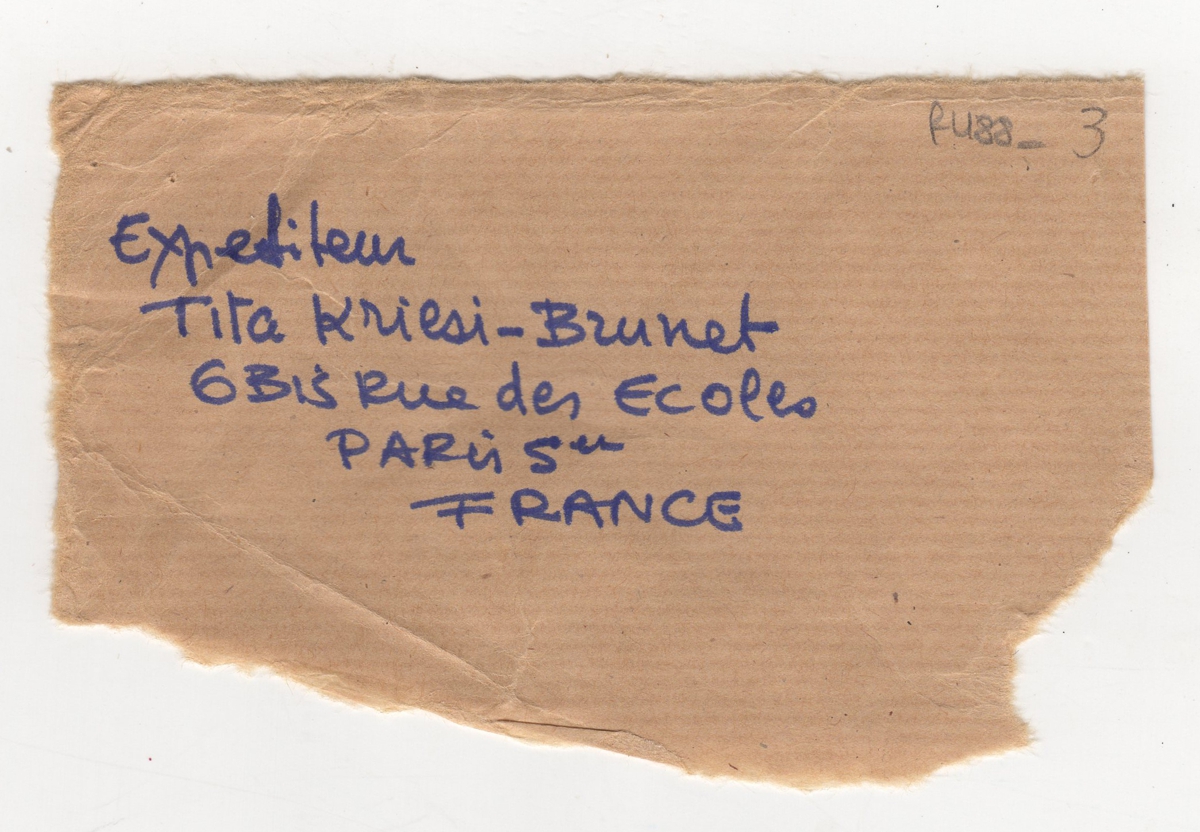 RU88_ 3
Expediteur
Tita Kriesi-Brunet
6 Bis Rue des Ecoles
PARis 5eme
FRANCE